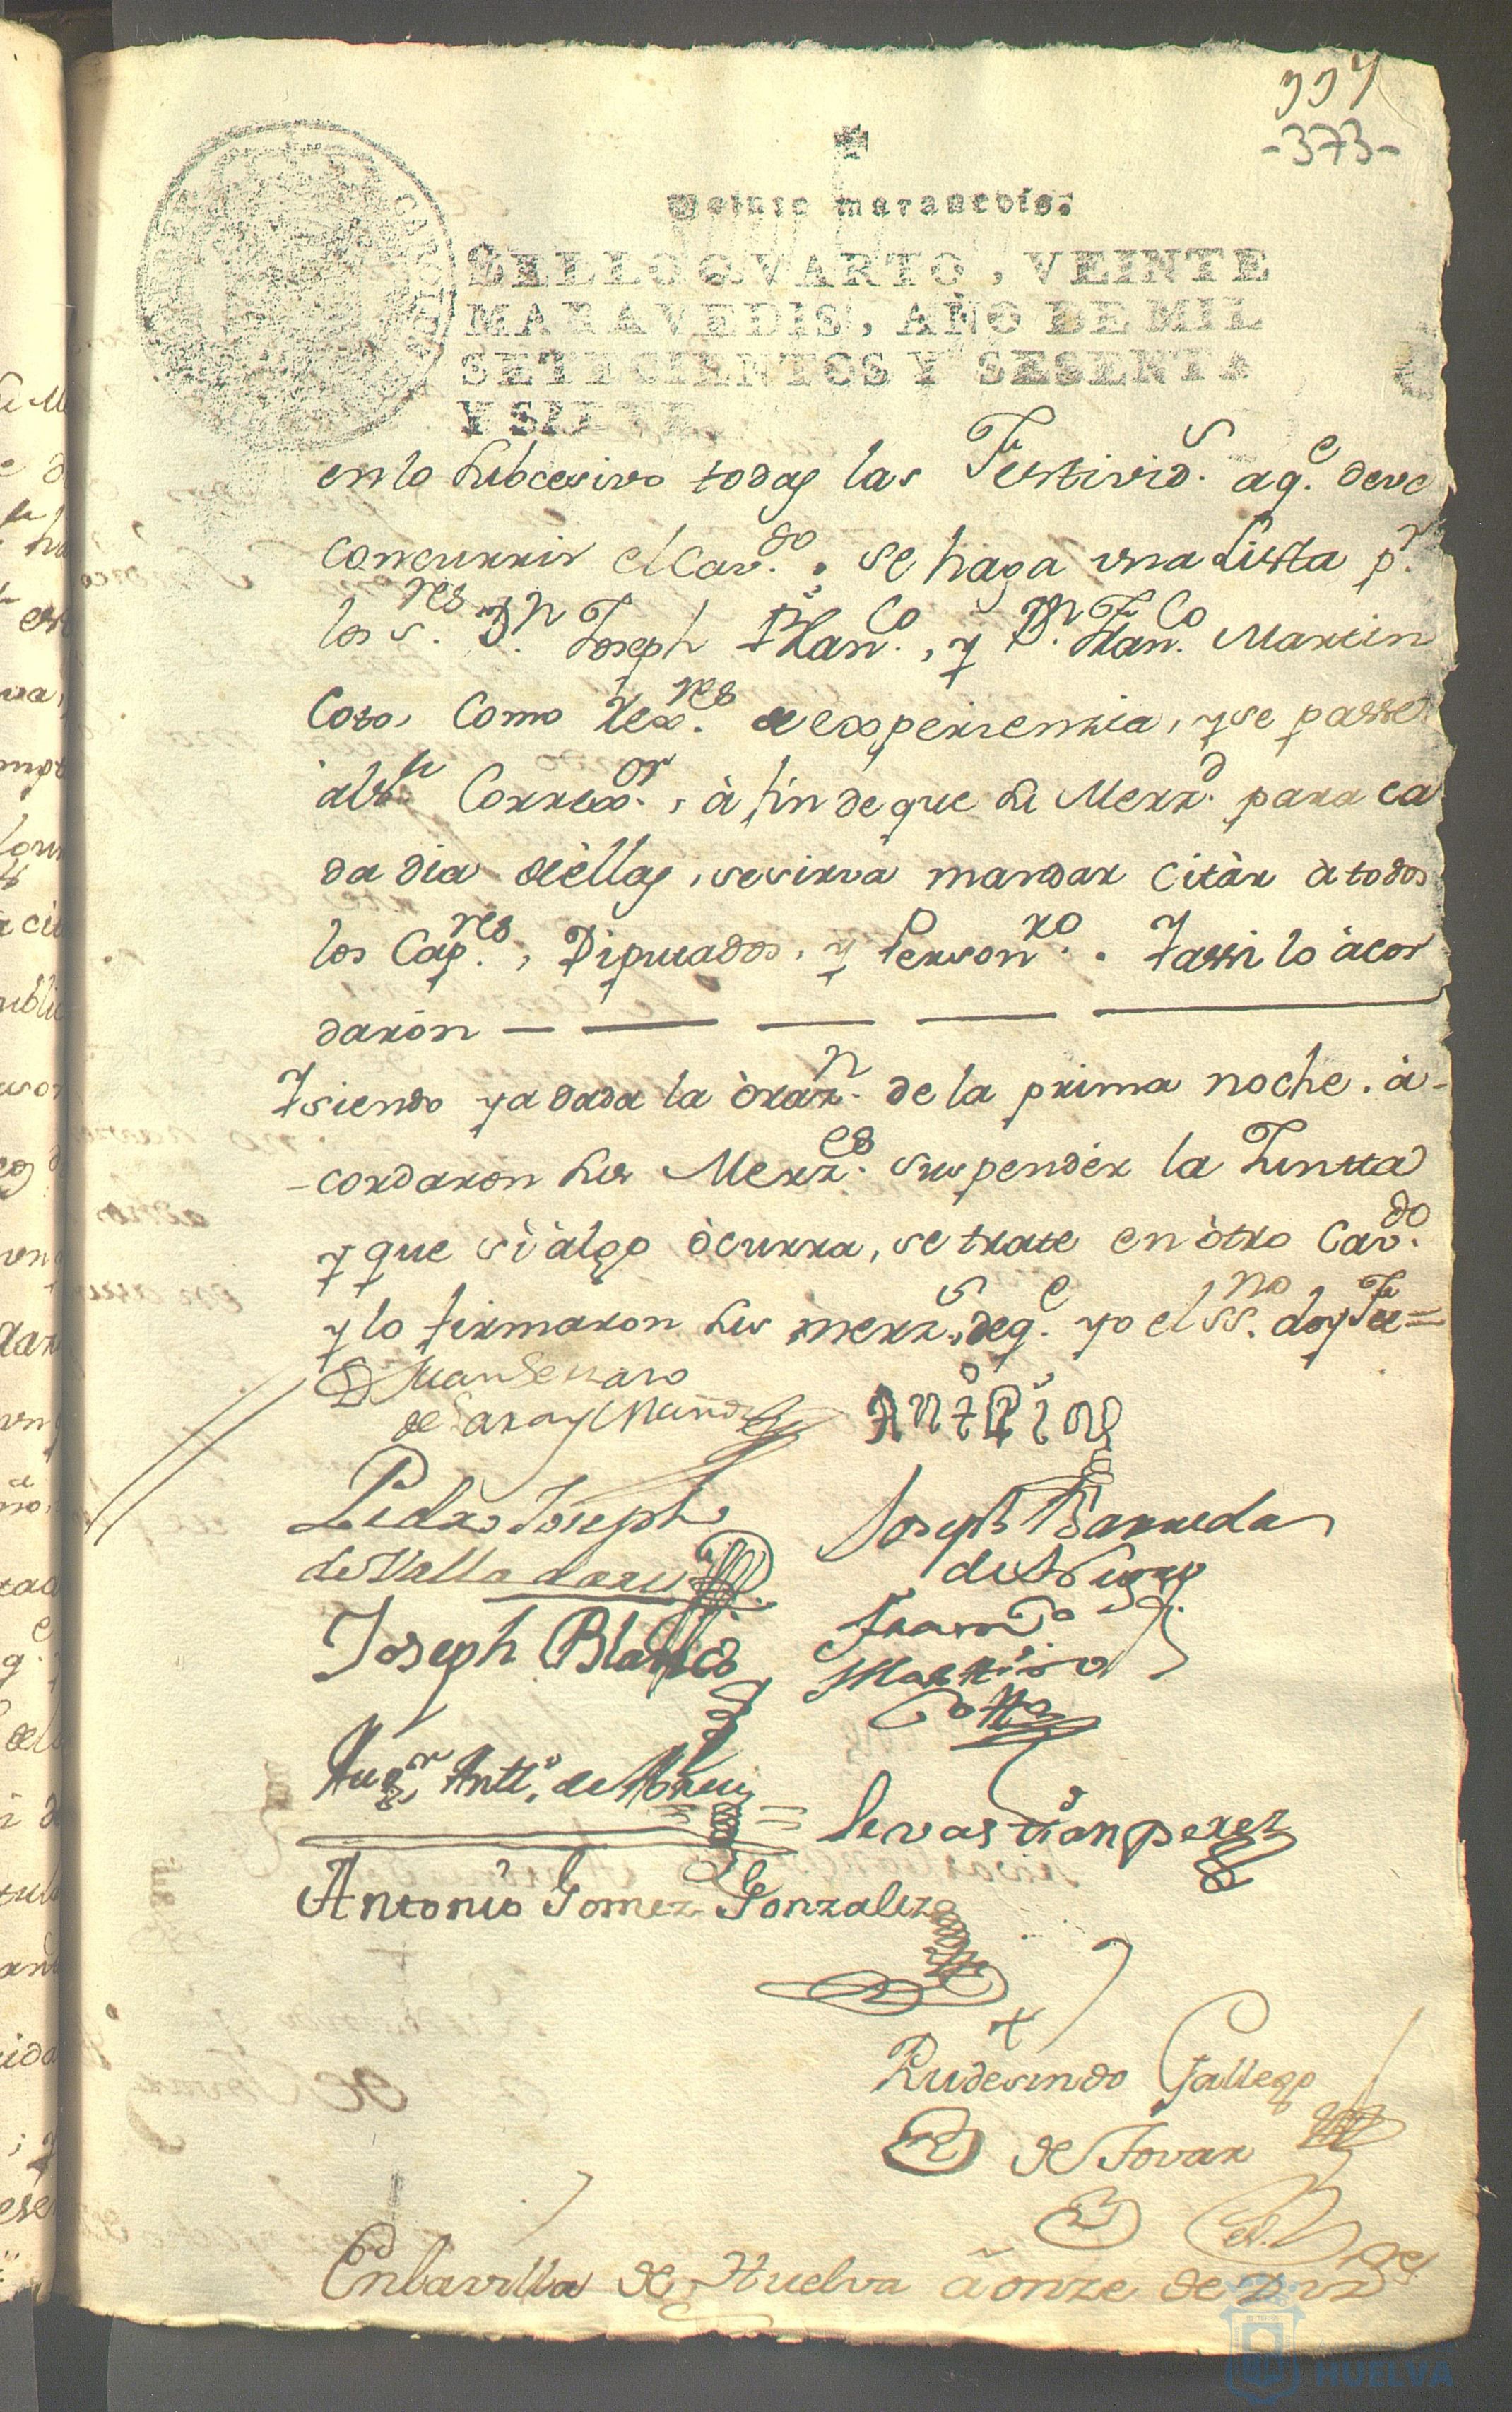 -373-
Veinte maravedis.
SELLO QVARTO, VEINTE
MARAVEDIS, AÑO DE MIL
SETECIENTOS Y SESENTA
Y SIETE.
en lo subcesivo todas las Festivid.s a q.e deve
concurrir el Cav.do, se haga una Lista p.r
los S.res D.n Joseph Blan.co, y D.n Fran.co Martin
Coto, como Rex.res de experienzia, y se passe
al S.r Correx.or, à fin de que su Merz.d para ca
da dia de èllas, se sirva mandar citàr à todos
los Cap.res, Diputados, y Person.ro. Y assi lo àcor
daron
Y siendo ya dada la òraz.n de la prima noche. à-
-cordaron sus Merz.es suspendèr la Juntta
y que si àlgo òcurra, se trate en òtro Cav.do
y lo firmaron sus merz.s, de q.e yo el SS.no doy Fee=
Pedro Joseph
de Valladares
Joseph Barreda
Joseph Blanco
Fran.co
Martin
Cotto
Aug.n Antt.o de Abreu
Sevastian perez
Antonio Gomez Gonzalez
Rudesindo Gallego
de Tovar
En la villa de Huelva à onze de
HUELVA